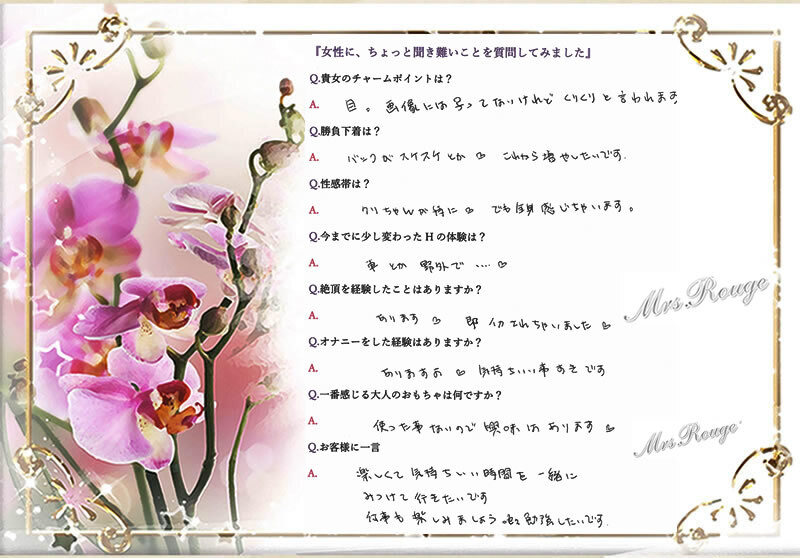 『女性に、ちょっと聞き難いことを質問してみました』
Q.貴女のチャームポイントは？
A. 目。画像には写ってないけれど くりくりと言われます
Q.勝負下着は？
A. バックがスケスケとか♡ これから増やしたいです.
Q.性感帯は？
A. クリちゃんが特に♡ でも全身感じちゃいます。
Q.今までに少し変わったＨの体験は？
A. 車とか 野外で….♡
Q.絶頂を経験したことはありますか？
A. あります♡ 即イカされちゃいました♡
Q.オナニーをした経験はありますか？
A. ありますよ♡ 気持ちいい事すきです
Q.一番感じる大人のおもちゃは何ですか？
A. 使った事ないので 興味はあります♡
Q.お客様に一言
A. 楽しくて気持ちいい時間を一緒に
みつけて行きたいです
何事も楽しみましょう 勉強したいです.
Mrs.Rouge
Mrs.Rouge